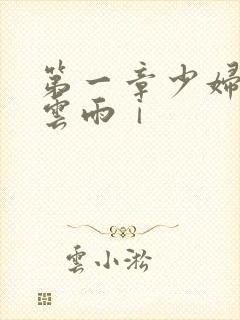 第一章少婦
雲雨|
雲小淞